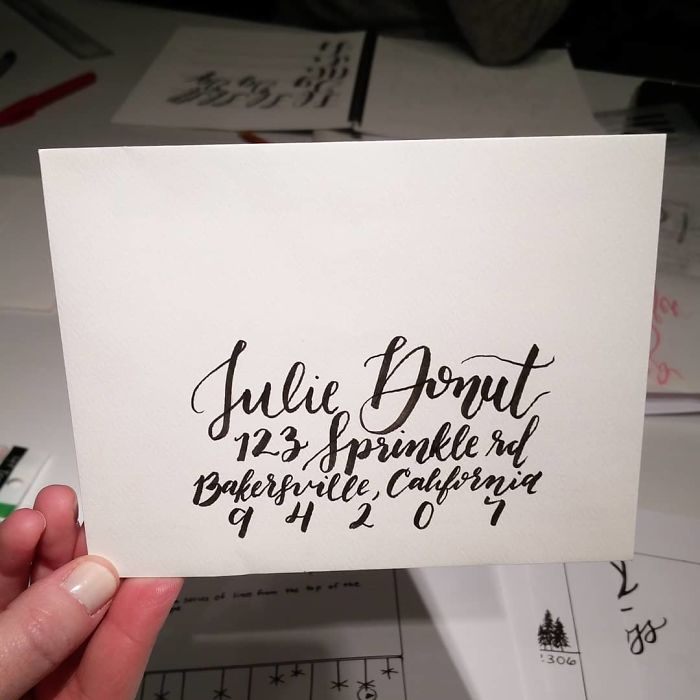 Julie Donut
123 Sprinkle rd
Bakersville, California
9 4 2 0 7
series of lines from the top of the
:306